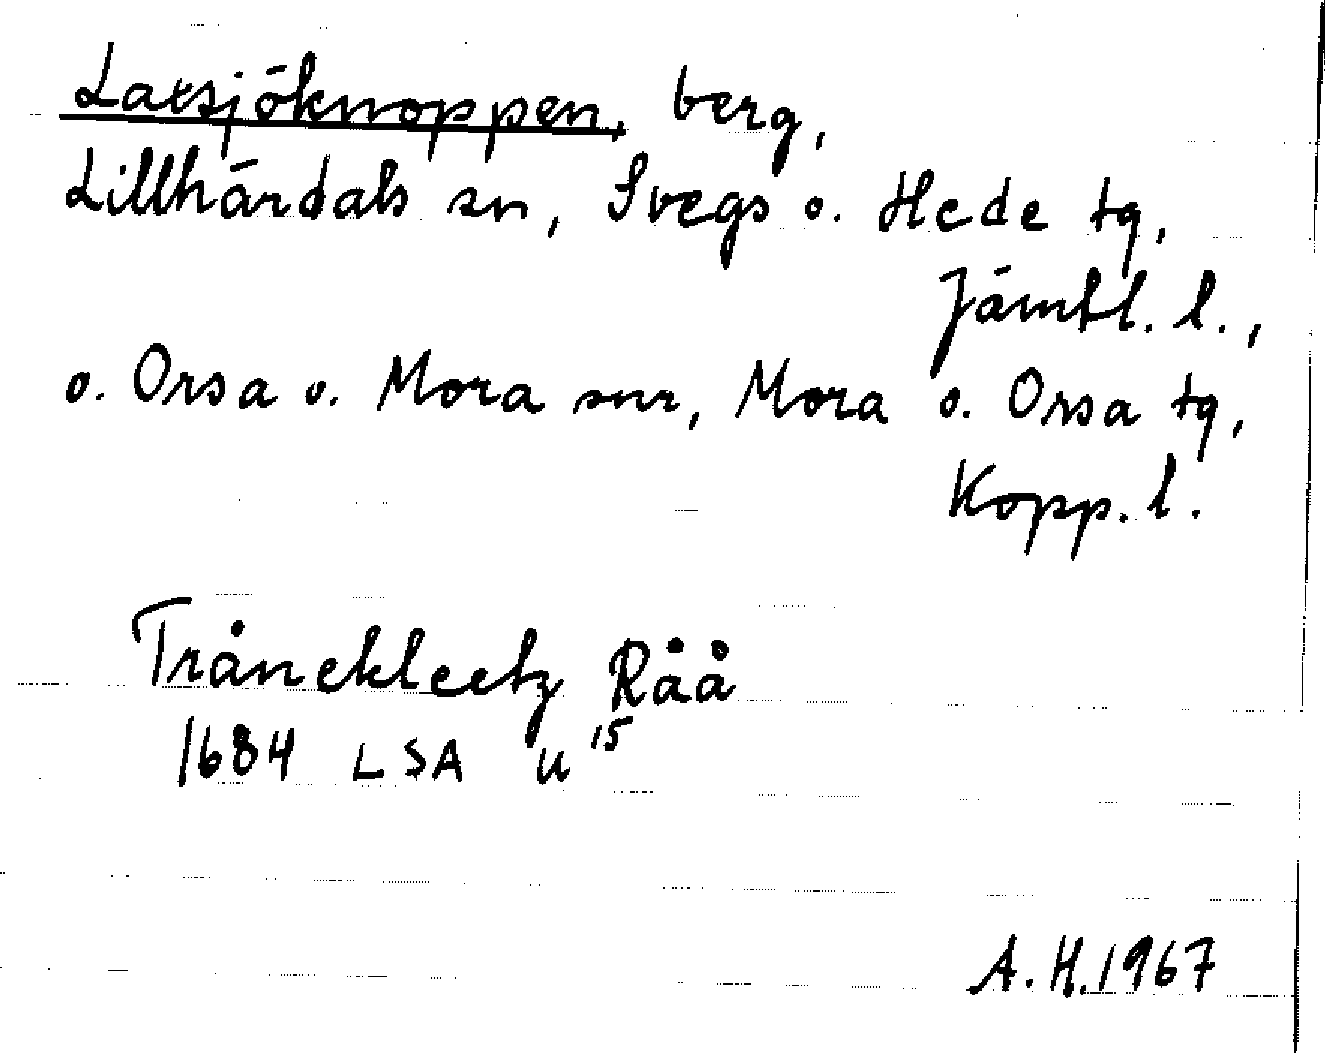 Latsjöknoppen, berg,
Lillhärdals sn, Svegs o. Hede tg,
Jämtl. l.,
o. Orsa o. Mora snr, Mora o. Orsa tg,
Kopp. l.
Trånekleetz Råå
1684 LSA U 15
A. H. 1967